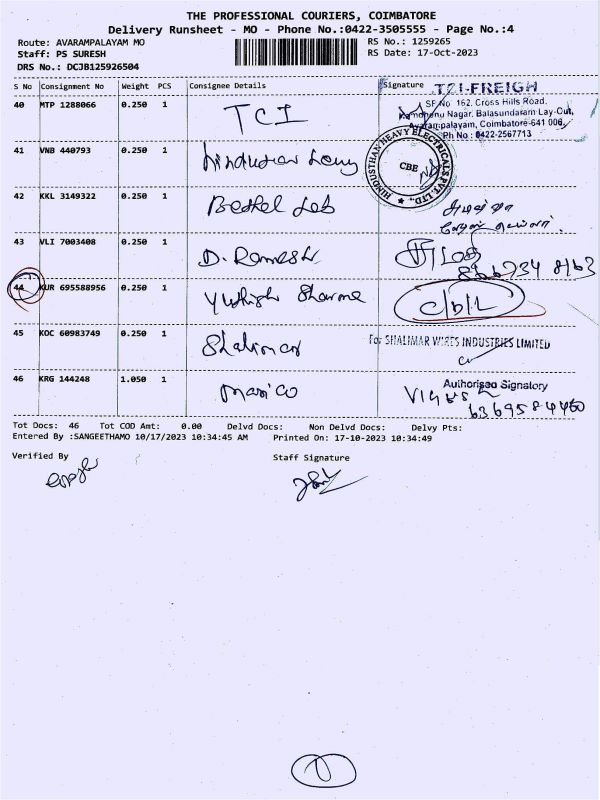 THE PROFESSIONAL COURIERS, COIMBATORE
Delivery Runsheet - MO - Phone No.:0422-3505555 - Page No.:4
Route: AVARAMPALAYAM MO
RS No.: 1259265
Staff: PS SURESH
RS Date: 17-Oct-2023
DRS No.: DCJB125926504
S No Consignment No Weight PCS Consignee Details Signature
40 MTP 1288066 0.250 1 TCI
TZI-FREIGH
SF No 162, Cross Hills Road,
Nagar, Balasundaram Lay-Out,
Avarampalayam, Coimbatore-641 006
Ph No : 0422-2567713
41 VNB 440793 0.250 1
HINDUSTHAN HEAVY ELECTRICALS PVT. LTD.,
CBE
42 KKL 3149322 0.250 1 Bethel Lab
43 VLI 7003408 0.250 1 D. Ramesh
44 KUR 695588956 0.250 1 Sharma
45 KOC 60983749 0.250 1 Shalimar
For SHALIMAR WIRES INDUSTRIES LIMITED
46 KRG 144248 1.050 1 Marico
Authorised Signatory
6369584460
Tot Docs: 46 Tot COD Amt: 0.00 Delvd Docs: Non Delvd Docs: Delvy Pts:
Entered By :SANGEETHAMO 10/17/2023 10:34:45 AM Printed On: 17-10-2023 10:34:49
Verified By Staff Signature